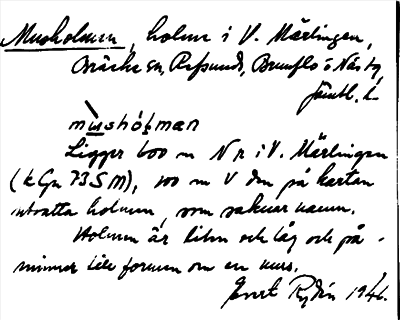 Musholmen, holme i V. Märlingen,
Bräcke sn, Refsunds, Brunflo o Näs tg,
Jämtl. l.
musholman
Ligger 600 m N n i V. Märlingen
(k Gn 73 S M), 100 m V den på kartan
utsatta holmen, som saknar namn.
Holmen är liten och låg och på-
minner till formen om en mus.
Evert Rydén 1946.